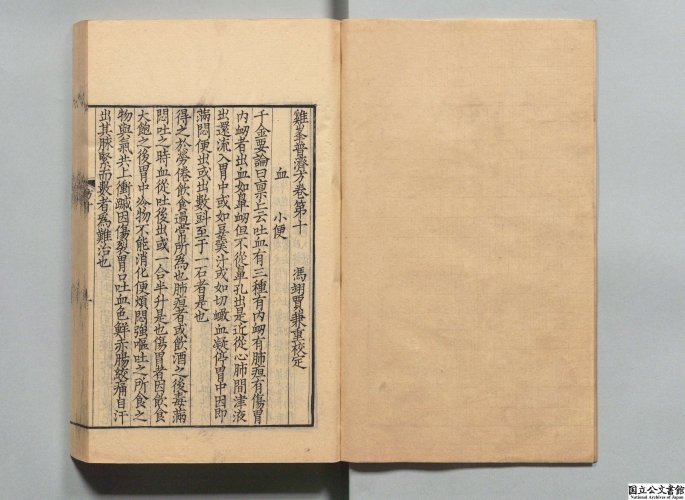 雞峯普濟方卷第十　馮翊賈兼重校定
血　小便
千金要論曰稟上云吐血有三種有內衂有肺疽有傷胃
內衂者出血如鼻衂但不從鼻孔出是近從心肺間津液
出還流入胃中或如豆羹汁或如切𧖴血凝停胃中因即
滿悶便出或出數㪷至于一石者是也
得之於勞倦飲食過常所為也肺疽者或飲酒之後毒滿
悶吐之時血從吐後出或一合半升是也傷胃者因飲食
大飽之後胃中冷物不能消化便煩悶強嘔吐之所食之
物與氣共上衝蹴因傷裂胃口吐血色鮮亦腸絞痛自汗
出其脉緊而數者為難治也
国立公文書館
National Archives of Japan